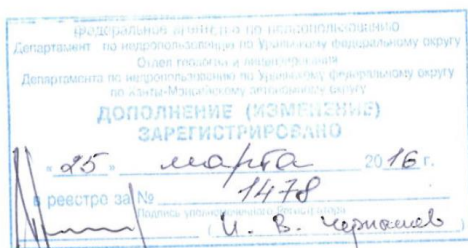 Федеральное агентство по недропользованию
Департамент по недропользованию по Уральскому федеральному округу
Отдел геологии и лицензирования
Департамента по недропользованию по Уральскому федеральному округу
по Ханты-Мансийскому автономному округу
ДОПОЛНЕНИЕ (ИЗМЕНЕНИЕ)
ЗАРЕГИСТРИРОВАНО
«25» марта 2016 г.
в реестре за № 1478
Подпись уполномоченного Регистратора
(И. В.